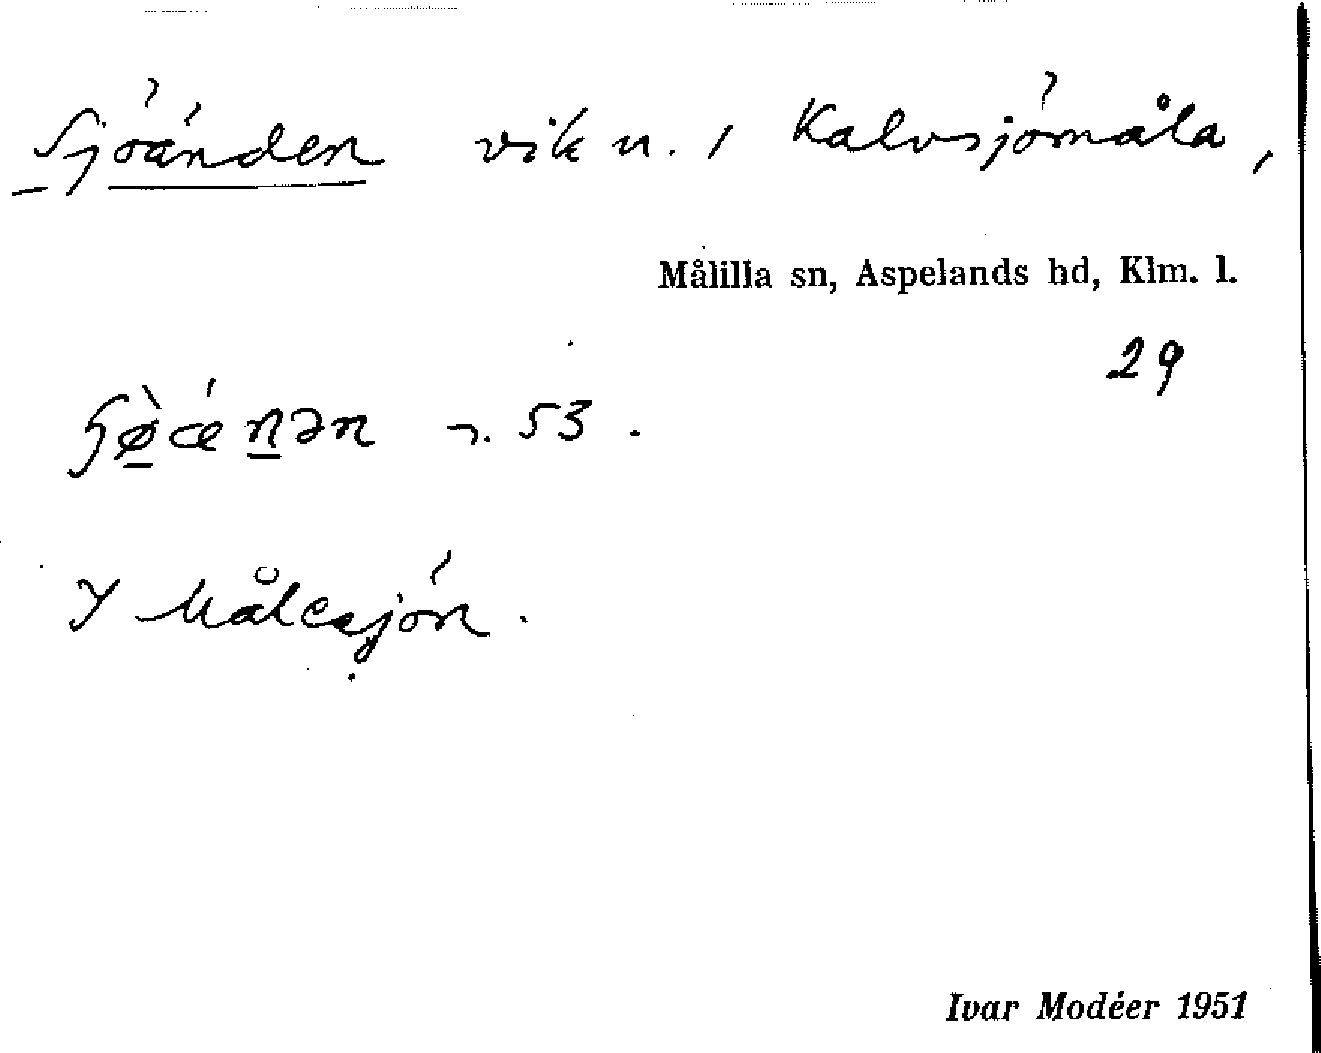 Sjöänden vik n. / Kalvsjömåla,
Målilla sn, Aspelands hd, Klm. l.
29
53.
Y
Ivar Modéer 1951